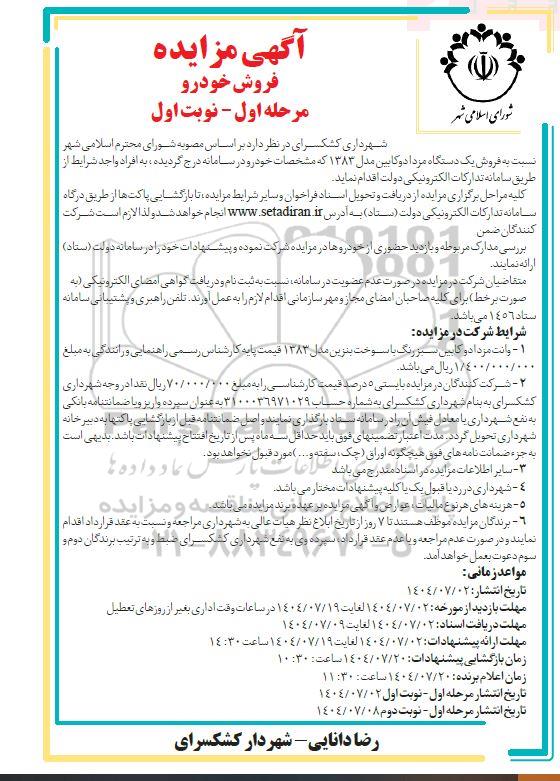 آگهی مزایده
فروش خودرو
مرحله اول - نوبت اول
شورای اسلامی شهر
شهرداری کشکسرای در نظر دارد بر اساس مصوبه شورای محترم اسلامی شهر
نسبت به فروش یک دستگاه مزدا دوکابین مدل ۱۳۸۳ که مشخصات خودرو در سامانه درج گردیده، به افراد واجد شرایط از
طریق سامانه تدارکات الکترونیکی دولت اقدام نماید.
کلیه مراحل برگزاری مزایده از دریافت و تحویل اسناد فراخوان و سایر شرایط مزایده، تا بازگشایی پاکت‌ها از طریق درگاه
سامانه تدارکات الکترونیکی دولت (ستاد) به آدرس www.setadiran.ir انجام خواهد شد و لذا لازم است شرکت
کنندگان ضمن
بررسی مدارک مربوطه و بازدید حضوری از خودرو ها در مزایده شرکت نموده و پیشنهادات خود را در سامانه دولت (ستاد)
ارائه نمایند.
متقاضیان شرکت در مزایده در صورت عدم عضویت در سامانه، نسبت به ثبت نام و دریافت گواهی امضای الکترونیکی (به
صورت برخط) برای کلیه صاحبان امضای مجاز و مهر سازمانی اقدام لازم را به عمل آورند. تلفن راهبری و پشتیبانی سامانه
ستاد ۱۴۵۶ می‌باشد.
شرایط شرکت در مزایده:
۱- وانت مزدا دو کابین سبز رنگ با سوخت بنزین مدل ۱۳۸۳ قیمت پایه کارشناس رسمی راهنمایی و رانندگی به مبلغ
۱/۴۰۰/۰۰۰/۰۰۰ ریال می‌باشد.
۲- شرکت کنندگان در مزایده بایستی ۵ درصد قیمت کارشناسی را به مبلغ ۷۰/۰۰۰/۰۰۰ ریال نقدا در وجه شهرداری
کشکسرای به بنام شهرداری کشکسرای به شماره حساب ۳۱۰۰۰۳۶۹۷۱۰۲۹ به عنوان سپرده واریز و یا ضمانتنامه بانکی
به نفع شهرداری یا معادل فیش آن را در سامانه ستاد بارگذاری نمایند و اصل ضمانتنامه قبل از بازگشایی پاکتها به دبیرخانه
شهرداری تحویل گردد. مدت اعتبار تضمینهای فوق باید حداقل سه ماه پس از تاریخ افتتاح پیشنهادات باشد. بدیهی است
به جزء ضمانت نامه های فوق هیچگونه اوراق (چک، سفته و...) مورد قبول نخواهد بود.
۳- سایر اطلاعات مزایده در اسناد مندرج می باشد
۴- شهرداری در رد یا قبول یک یا کلیه پیشنهادات مختار می باشد.
۵- هزینه های هر نوع مالیات، عوارض و آگهی مزایده بر عهده برنده مزایده می باشد.
۶- برندگان مزایده موظف هستند تا ۷ روز از تاریخ ابلاغ نظر هیات عالی به شهرداری مراجعه و نسبت به عقد قرارداد اقدام
نمایند و در صورت عدم مراجعه و یا عدم عقد قرارداد، سپرده وی به نفع شهرداری کشکسرای ضبط و به ترتیب برندگان دوم و
سوم دعوت بعمل خواهد آمد.
مواعد زمانی:
تاریخ انتشار: ۱۴۰۴/۰۷/۰۲
مهلت بازدید از مورخه: ۱۴۰۴/۰۷/۰۲ لغایت ۱۴۰۴/۰۷/۱۹ در ساعات وقت اداری بغیر از روزهای تعطیل
مهلت دریافت اسناد: ۱۴۰۴/۰۷/۰۲ لغایت ۱۴۰۴/۰۷/۰۹
مهلت ارائه پیشنهادات: ۱۴۰۴/۰۷/۰۲ لغایت ۱۴۰۴/۰۷/۱۹ ساعت ۱۴:۳۰
زمان بازگشایی پیشنهادات: ۱۴۰۴/۰۷/۲۰ ساعت: ۱۰:۳۰
زمان اعلام برنده: ۱۴۰۴/۰۷/۲۰ ساعت: ۱۱:۳۰
تاریخ انتشار مرحله اول - نوبت اول ۱۴۰۴/۰۷/۰۲
تاریخ انتشار مرحله اول - نوبت دوم ۱۴۰۴/۰۷/۰۸
رضا دانایی - شهردار کشکسرای